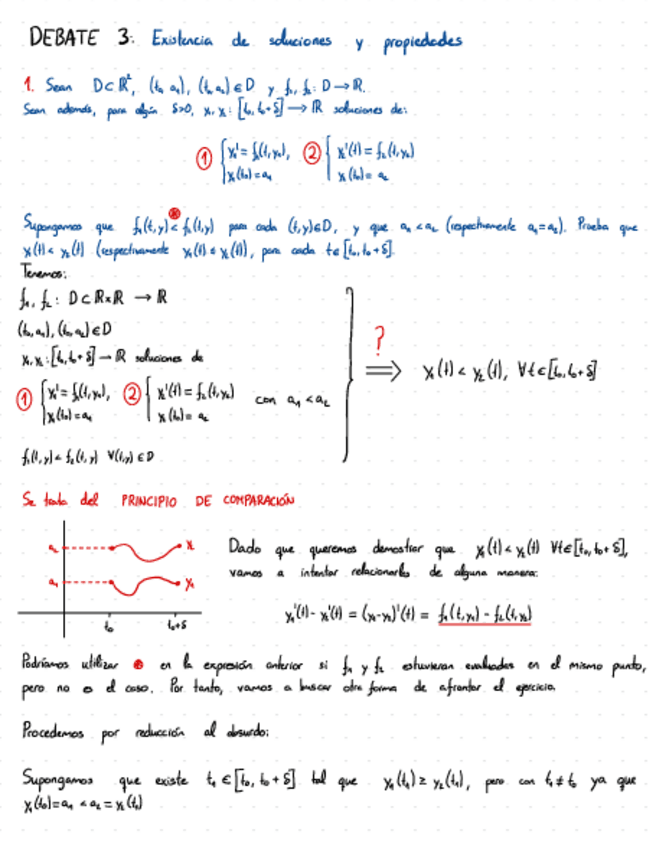 DEBATE 3: Existencia de soluciones y propiedades
1. Sean D⊂ℝ², (t₀, a₁), (t₀, a₂) ∈ D y f₁, f₂: D → ℝ.
Sean además, para algún δ>0, x₁, x₂: [t₀, t₀+δ] → ℝ soluciones de:
① { x₁' = f₁(t, x₁), ② { x₂'(t) = f₂(t, x₂)
x₁(t₀) = a₁ x₂(t₀) = a₂
Supongamos que f₁(t,y) < f₂(t,y) para cada (t,y)∈D, y que a₁ < a₂ (respectivamente a₁=a₂). Prueba que
x₁(t) < x₂(t) (respectivamente x₁(t) ≤ x₂(t)), para cada t∈[t₀, t₀+δ].
Tenemos:
f₁, f₂: D⊂ℝ×ℝ → ℝ
(t₀, a₁), (t₀, a₂) ∈ D
x₁, x₂: [t₀, t₀+δ] → ℝ soluciones de
① { x₁' = f₁(t, x₁), ② { x₂'(t) = f₂(t, x₂) con a₁ < a₂
x₁(t₀) = a₁ x₂(t₀) = a₂
f₁(t,y) < f₂(t,y) ∀(t,y) ∈ D
?
⟹ x₁(t) < x₂(t), ∀t∈[t₀, t₀+δ]
Se trata del PRINCIPIO DE COMPARACIÓN
a₂ x₂
a₁ x₁
t₀ t₀+δ
Dado que queremos demostrar que x₁(t) < x₂(t) ∀t∈[t₀, t₀+δ],
vamos a intentar relacionarlos de alguna manera:
x₁'(t) - x₂'(t) = (x₁-x₂)'(t) = f₁(t, x₁) - f₂(t, x₂)
Podríamos utilizar ⊛ en la expresión anterior si f₁ y f₂ estuvieran evaluadas en el mismo punto,
pero no es el caso. Por tanto, vamos a buscar otra forma de afrontar el ejercicio.
Procedemos por reducción al absurdo:
Supongamos que existe t₁ ∈ [t₀, t₀+δ] tal que x₁(t₁) ≥ x₂(t₁), pero con t₁ ≠ t₀ ya que
x₁(t₀) = a₁ < a₂ = x₂(t₀)